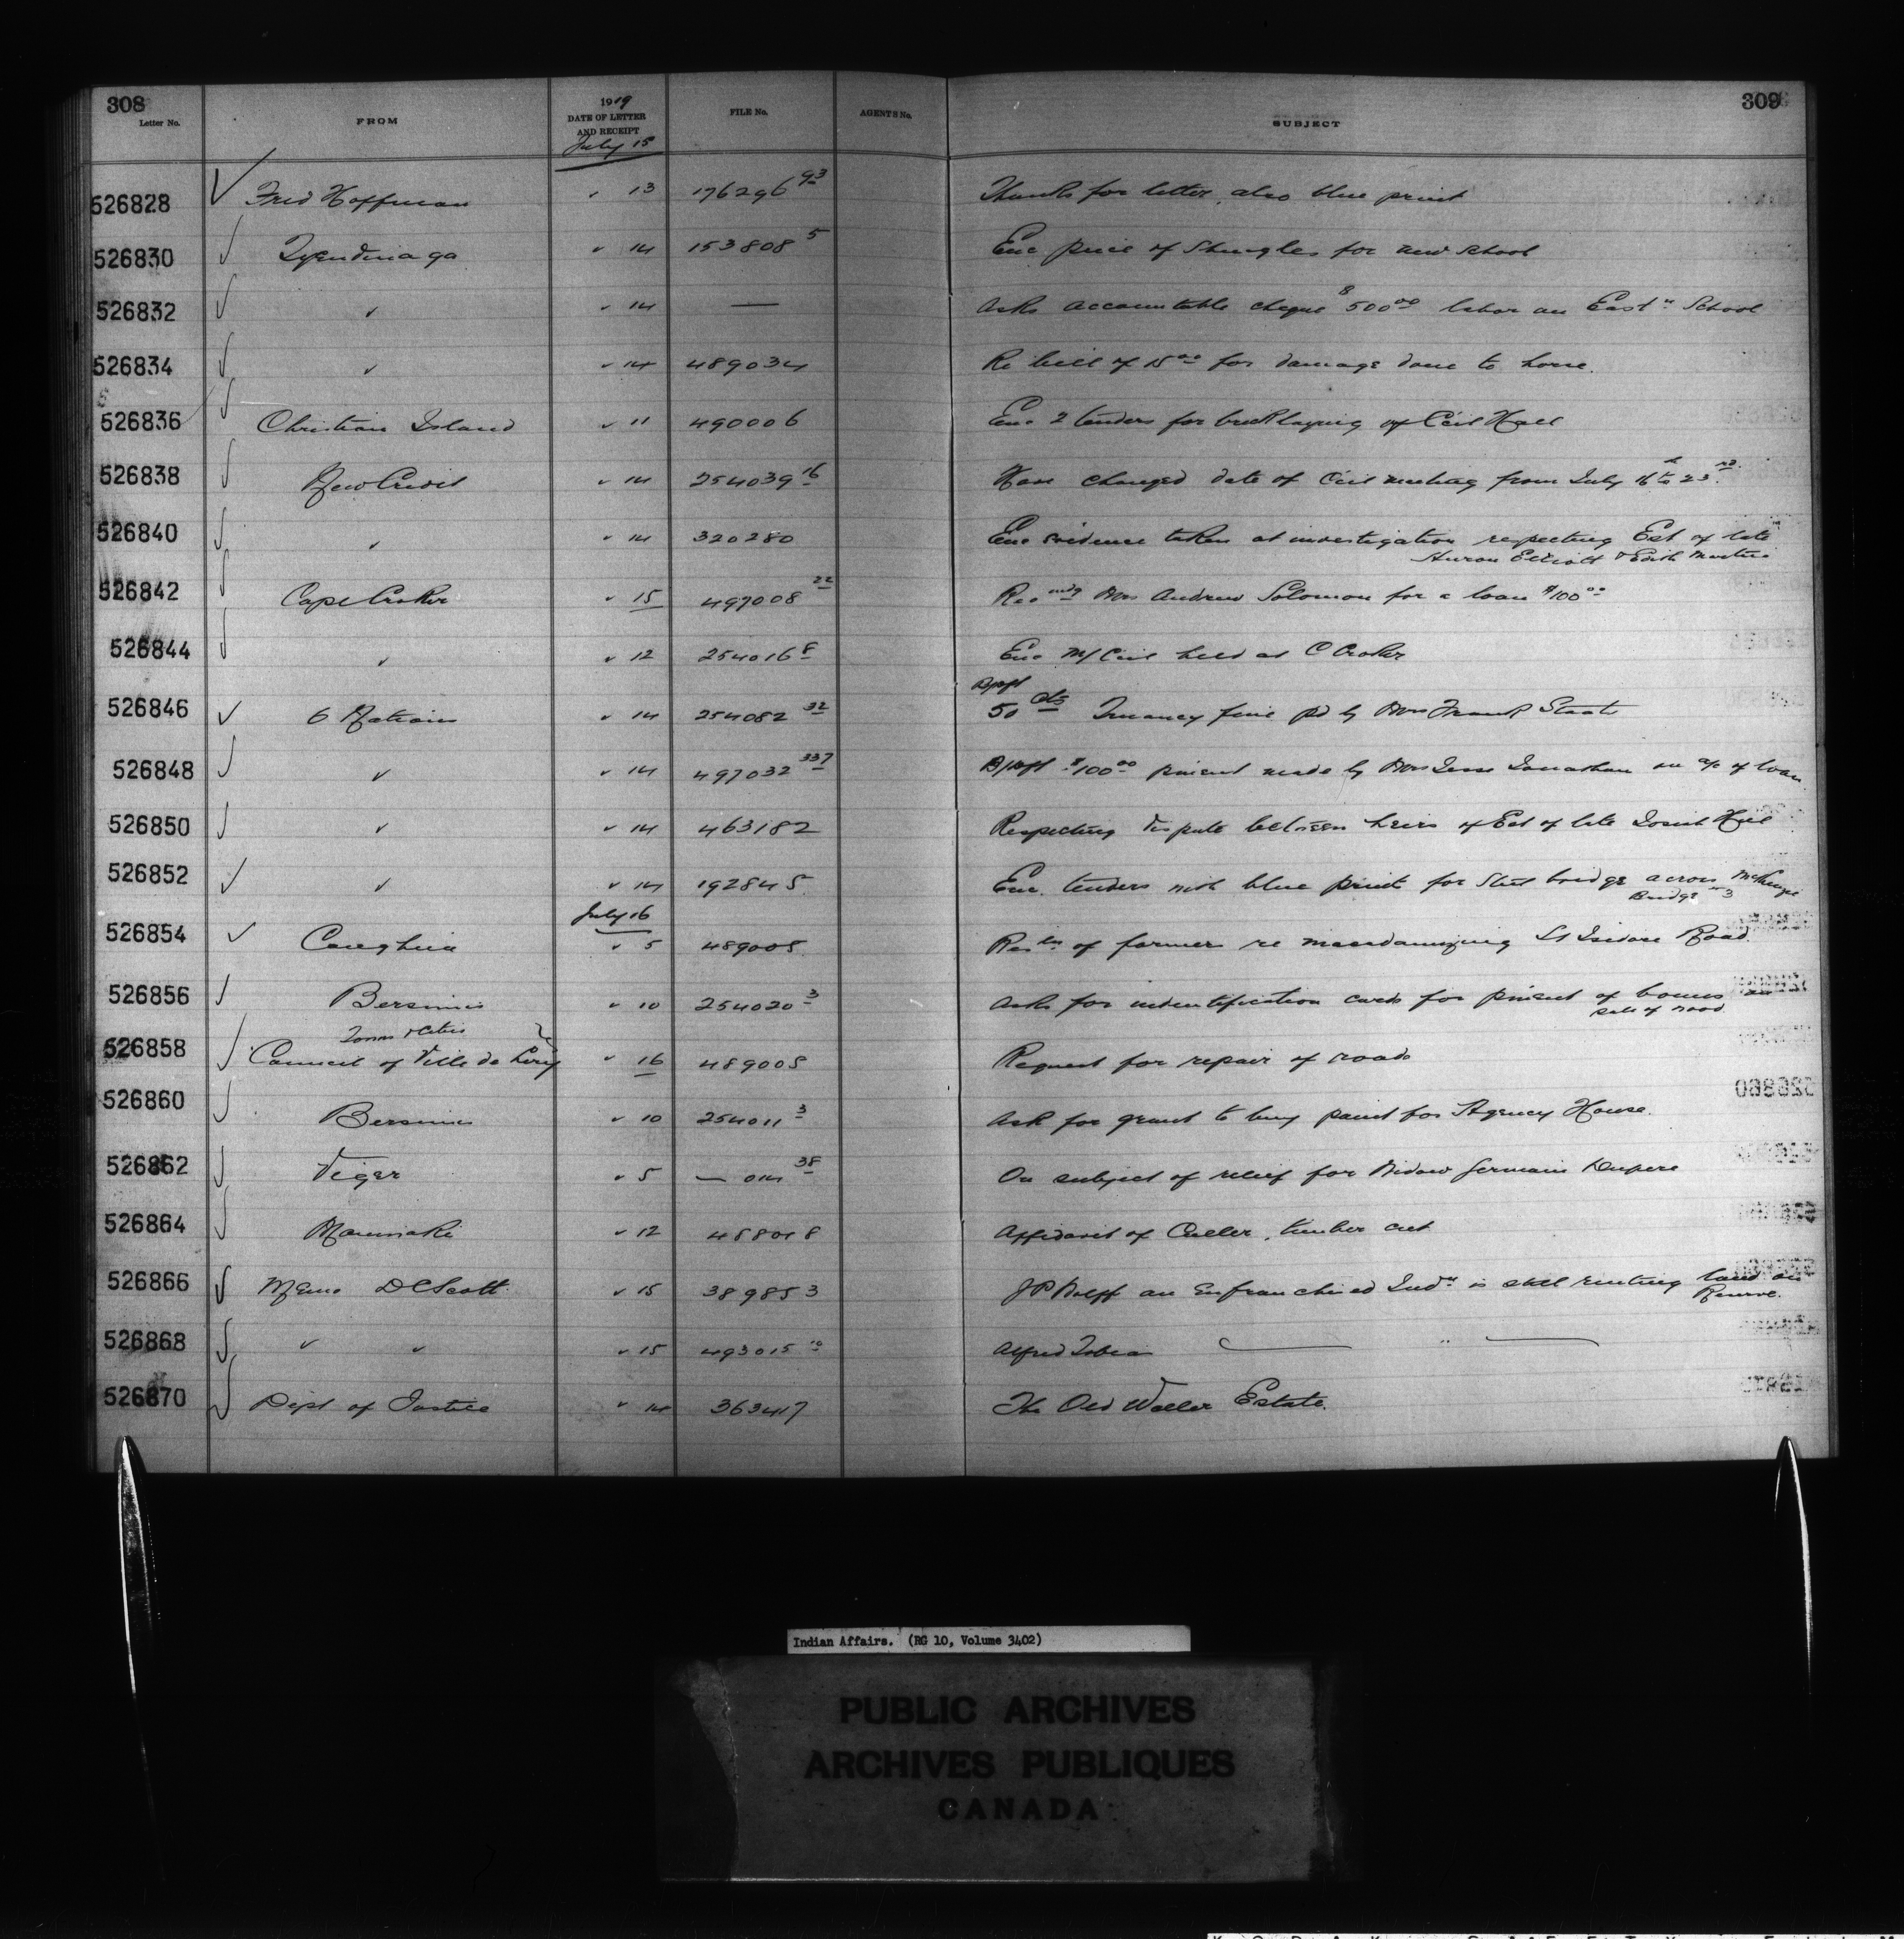 308
309
Letter No.
FROM
1919
DATE OF LETTER
AND RECEIPT
FILE No.
AGENTS No.
SUBJECT
July 15
526828 ✓ Fred Hoffman " 13 176296 93 Thanks for letter, also blue print
526830 ✓ Tyendinaga " 14 153808 5 Enc price of Shingles for new school
526832 ✓ " " 14 — Asks accountable cheque $500 00 labor on East n School
526834 ✓ " " 14 489034 Re bill of 15 00 for damage done to horse.
526836 ✓ Christian Island " 11 490006 Enc 2 tenders for bricklaying of Ccil Hall
526838 ✓ New Credit " 14 254039 16 Have changed date of Ccil meeting from July 16 th to 23 rd.
526840 ✓ " " 14 320280 Enc evidence taken at investigation respecting Est of late
Huron Elliott & Edith Martin
526842 ✓ Cape Croker " 15 497008 22 Recmdg Mrs Andrew Solomon for a loan $100 00
526844 ✓ " " 12 254016 8 Enc M/ Ccil held at C Croker
526846 ✓ 6 Nations " 14 254082 32 50 cts Truancy fine pd by Mrs Frank Staats
526848 ✓ " " 14 497032 337 $100 00 pment made by Mrs Jesse Jonathan on a/c of loan
526850 ✓ " " 14 463182 Respecting dispute between heirs of Est of late Josiah Hill
526852 ✓ " " 14 192845 Enc. tenders with blue print for Steel bridge across McKenzie
Bridge n 3
July 16
526854 ✓ Caughna " 5 489005 Res ln of farmers re macadamizing St Isidore Road.
526856 ✓ Bersimis " 10 254020 3 Asks for indentification cards for pment of bonus
sale of wood
526858 ✓ Council of Ville de Lery " 16 489005 Request for repair of roads
526860 ✓ Bersimis " 10 254011 3 Ask for grant to buy paint for Agency House.
526862 ✓ Viger " 5 — 014 38 On subject of relief for Widow Germain Dupere
526864 ✓ Maniwaki " 12 458018 Affidavit of Culler, timber cut
526866 ✓ Memo D C Scott " 15 389853 J P Wolff an Enfranchised Ind n is still renting land on
Reserve.
526868 ✓ " " " 15 493015 10 Alfred Tobias — " —
526870 ✓ Dept of Justice " 14 363417 The Old Waller Estate.
Indian Affairs. (RG 10, Volume 3402)
PUBLIC ARCHIVES
ARCHIVES PUBLIQUES
CANADA